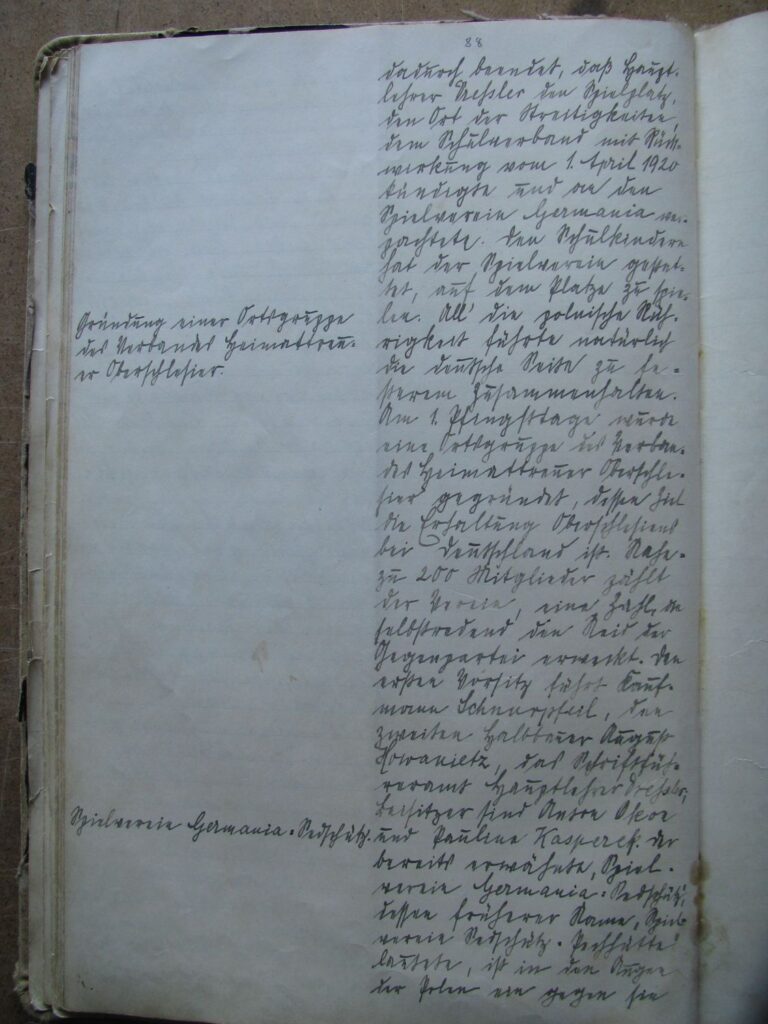 88
dadurch beendet, daß Haupt-
lehrer den Spielplatz,
den Ort der Streitigkeiten,
dem Schulverband mit Rück-
wirkung vom 1. April 1920
kündigte und an den
Spielverein Germania ver-
pachtete. Den Schulkindern
hat der Spielverein gestat-
tet, auf dem Platze zu spie-
len. All' die polnische Rüh-
rigkeit führte natürlich
die deutsche Seite zu fe-
sterem Zusammenhalten.
Am 1. Pfingsttage wurde
eine Ortsgruppe des Verban-
des Heimattreuer Oberschle-
sier gegründet, dessen Ziel
die Erhaltung Oberschlesiens
bei Deutschland ist. Nahe-
zu 200 Mitglieder zählt
der Verein, eine Zahl, die
selbstredend den Neid der
Gegenpartei erweckt. Den
ersten Vorsitz führt Kauf-
mann Schnurpfeil, den
zweiten Halbbauer August
Kowanietz, das Schriftfüh-
reramt Hauptlehrer
Beisitzer sind Anton
und Pauline Kasperek. Der
bereits erwähnte, Spiel-
verein Germania-Sedschütz',
dessen früherer Name, Spiel-
verein Sedschütz-Pechhütte'
lautete, ist in den Augen
der Polen ein gegen sie
Gründung einer Ortsgruppe
des Verbandes Heimattreu-
er Oberschlesier.
Spielverein Germania-Sedschütz.